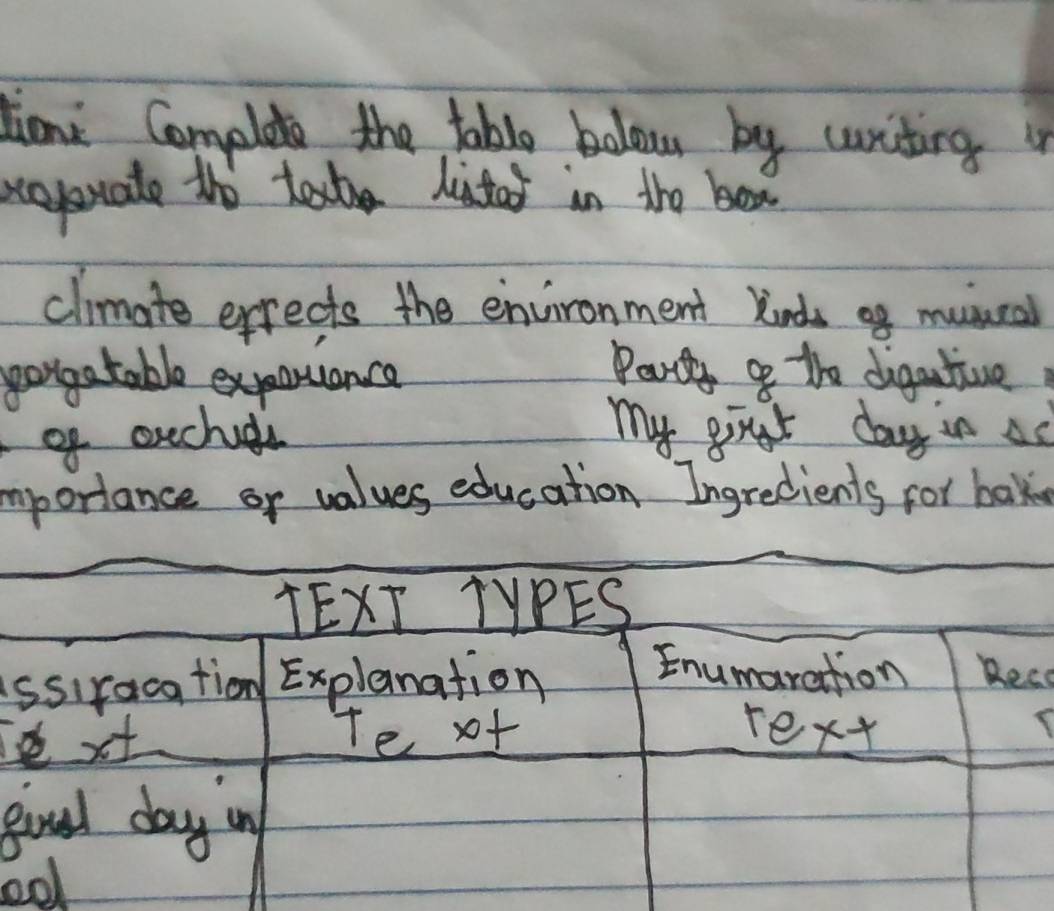 tion: Complete the table below by writing in
the texts listed in the box
climate effects the environment Kinds of musical
forgatable experience Parts of the digestive
of orchids My first day in sc
mportance of values education Ingredients for bakin
TEXT TYPES
ssifacation Explanation Enumaration Reco
Te xt Te xt Text T
first day in
ool